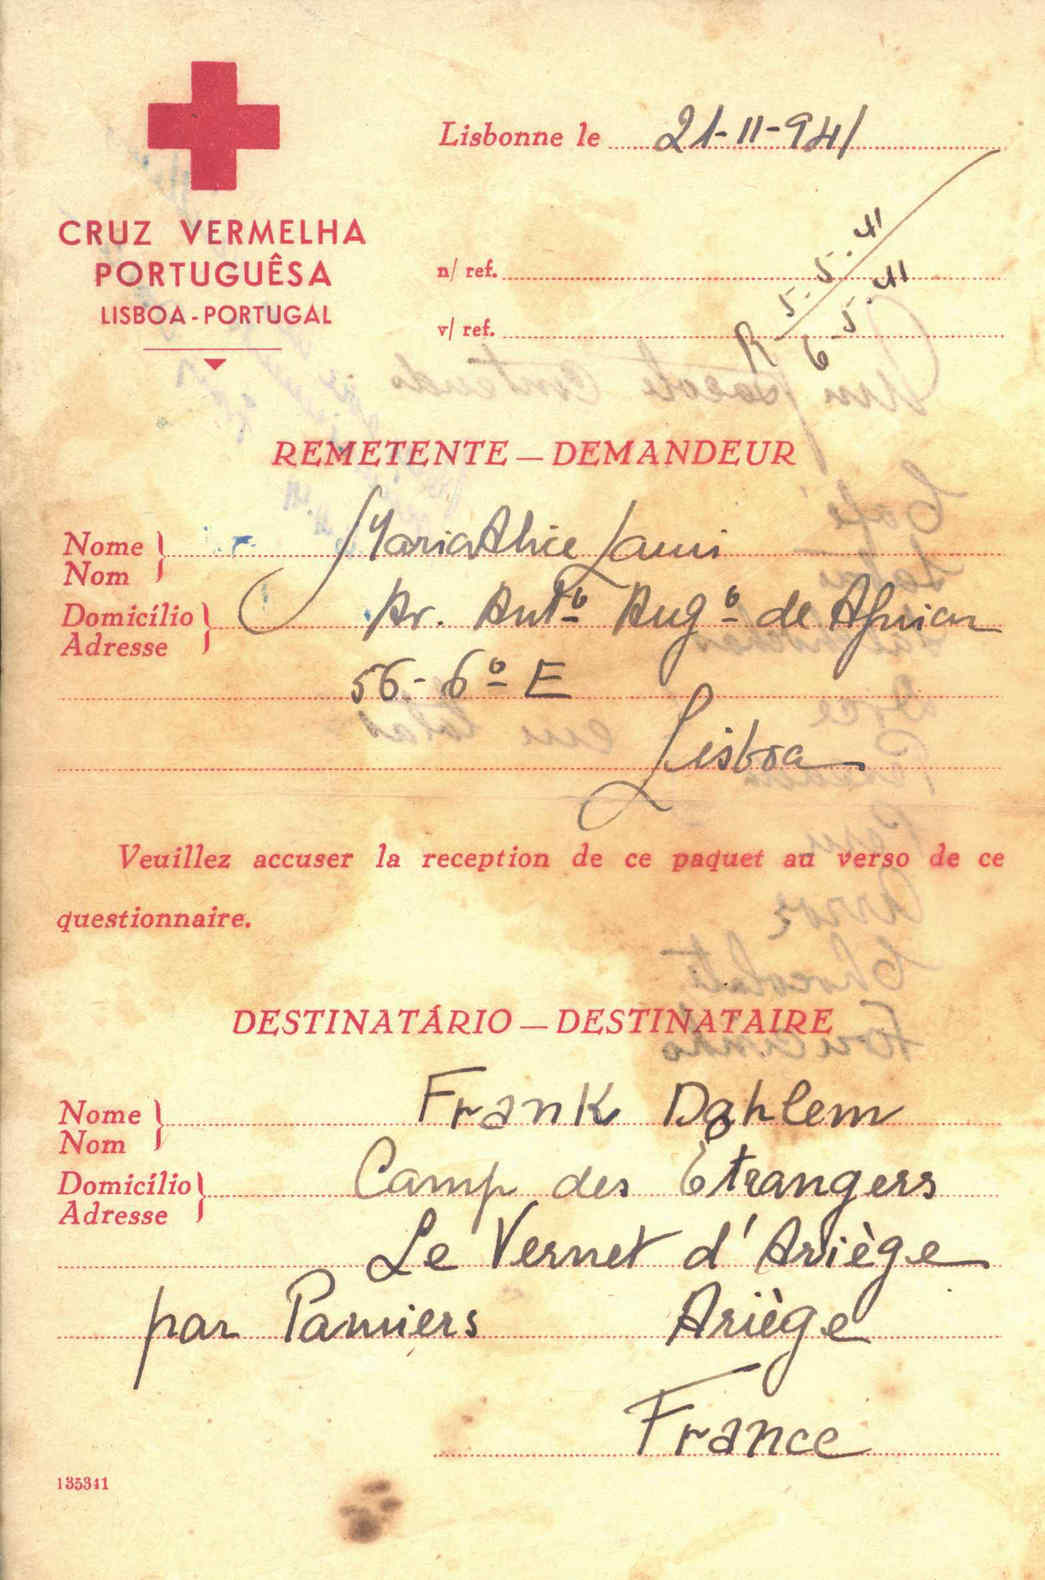 CRUZ VERMELHA
PORTUGUÊSA
LISBOA - PORTUGAL
Lisbonne le 21-11-941
n/ ref.
v/ ref.
R 5-5-41
6-5-41
REMETENTE — DEMANDEUR
Nome
Nom
Maria Alice
Domicílio
Adresse
Av. Antº Augº de Aguiar
56-6º E
Lisboa
Veuillez accuser la reception de ce paquet au verso de ce
questionnaire.
DESTINATÁRIO — DESTINATAIRE
Nome
Nom
Frank Dahlem
Domicílio
Adresse
Camp des Étrangers
Le Vernet d'Ariège
par Pamiers Ariège
France
135341